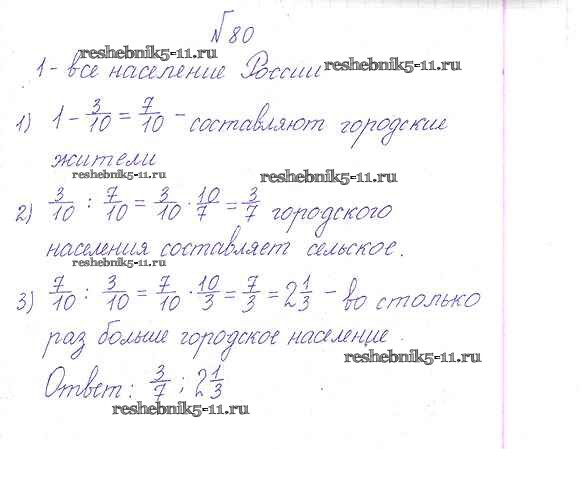 №80
reshebnik5-11.ru
1 - все население России reshebnik5-11.ru
1) 1 - 3/10 = 7/10 - составляют городские
жители
reshebnik5-11.ru reshebnik5-11.ru
2) 3/10 : 7/10 = 3/10 · 10/7 = 3/7 городского
населения составляет сельское.
reshebnik5-11.ru
3) 7/10 : 3/10 = 7/10 · 10/3 = 7/3 = 2 1/3 - во столько
раз больше городское население.
reshebnik5-11.ru
Ответ: 3/7 ; 2 1/3
reshebnik5-11.ru